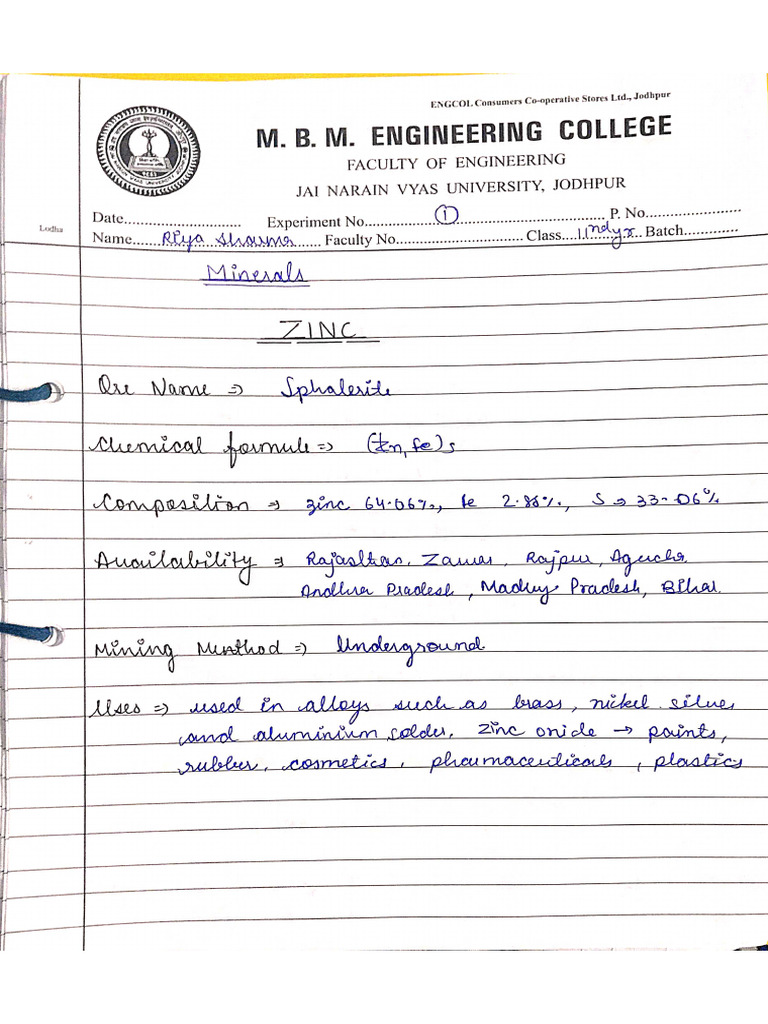 ENGCOL Consumers Co-operative Stores Ltd., Jodhpur
M. B. M. ENGINEERING COLLEGE
FACULTY OF ENGINEERING
JAI NARAIN VYAS UNIVERSITY, JODHPUR
Lodha
Date.......................... Experiment No.................①.................... P. No.....................
Name........Riya Sharma....... Faculty No............................ Class....IInd yr.. Batch.............
Minerals
ZINC
Ore Name ⇒ Sphalerite
Chemical formule ⇒ (Zn, fe)s
Composition ⇒ zinc 64.06%, fe 2.88%, S ⇒ 33.06%
Availability ⇒ Rajasthan, Zawar, Rajpur, Agucha
Andhra Pradesh, Madhy Pradesh, Bihar
Mining Method ⇒ Underground
Uses ⇒ used in alloys such as brass, nickel silver
and aluminium solder, zinc oxide → paints,
rubber, cosmetics, pharmaceuticals, plastics